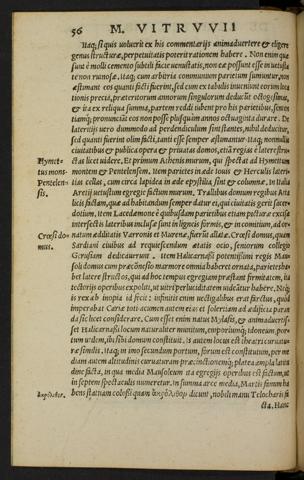 56 M. VITRVVII
Itaq; si quis voluerit ex his commentarijs animaduertere & eligere
genus structuræ, perpetuitatis poterit rationem habere. Non enim quæ
sunt è molli cemento subtili facie venustatis, non eæ possunt esse in vetusta
te non ruinosæ. Itaq; cum arbitrio communium parietum sumuntur, non
æstimant eos quanti facti fuerint, sed cum ex tabulis inueniunt eorum loca
tionis precia, præteritorum annorum singulorum deducũt octogesimas,
& ita ex reliqua summa, partem reddi iubent pro his parietibus, senten
tiamq; pronunciãt eos non posse plusquàm annos octuaginta durare. De
lateritijs uero dummodo ad perpendiculum sint stantes, nihil deducitur,
sed quanti fuerint olim facti, tanti esse semper æstimantur. Itaq; nonnullis
ciuitatibus & publica opera & priuatas domos, etiã regias è latere stru-
Hymet ctas licet uidere. Et primum Athenis murum, qui spectat ad Hymettum
tus mons montem & Pentelensem. Item parietes in æde Iouis & Herculis lateri-
Pentelen- tias cellas, cum circa lapidea in æde epystilia sint & columnæ. In Italia
sis. Aretij uetustum egregiè factum murum. Trallibus domum regibus Atta
licis factam, quæ ad habitandum semper datur ei, qui ciuitatis gerit sacer-
dotium. Item Lacedæmone è quibusdam parietibus etiam picturæ excisæ
intersectis lateribus inclusæ sunt in ligneis formis, & in comitium, ad or-
Crœsi do- natum ædilitatis Varronis & Murenæ, fuerũt allatæ. Crœsi domus, quam
mus. Sardiani ciuibus ad requiescendum ætatis ocio, seniorum collegio
Gerusiam dedicauerunt. Item Halicarnassi potentissimi regis Mau-
soli domus cum præcõnesio marmore omnia haberet ornata, parietes ha-
bet latere structos, qui ad hoc tempus egregiam præstant firmitatem, ita
tectorijs operibus expoliti, ut uitri perluciditatem uideãtur habere. Necq;
is rex ab inopia id fecit: infinitis enim uectigalibus erat farctus, quòd
imperabat Cariæ toti acumen autem eius et soleriam ad ædificia paran
da sic licet considerare. Cum esset enim natus Mylasis, & animaduertis-
set Halicarnassi locum naturaliter munitum, emporiumq; idoneum, por-
tum utilem, ibi sibi domum constituit. Is autem locus est theatri curuatu-
ræ similis. Itaq; in imo secundum portum, forum est constitutum, per me
diam autem altitudinis curuaturam præcinctionemq; platea ampla latitu
dine facta, in qua media Mausoleum ita egregijs operibus est factum, ut
in septem spectaculis numeretur. In summa arce media, Martis fanum ha
ἀκρόλιθοσ. bens statuam colossi quam ἀκρόλιθον dicunt, nobili manu Telocharis fa
cta. Hanc